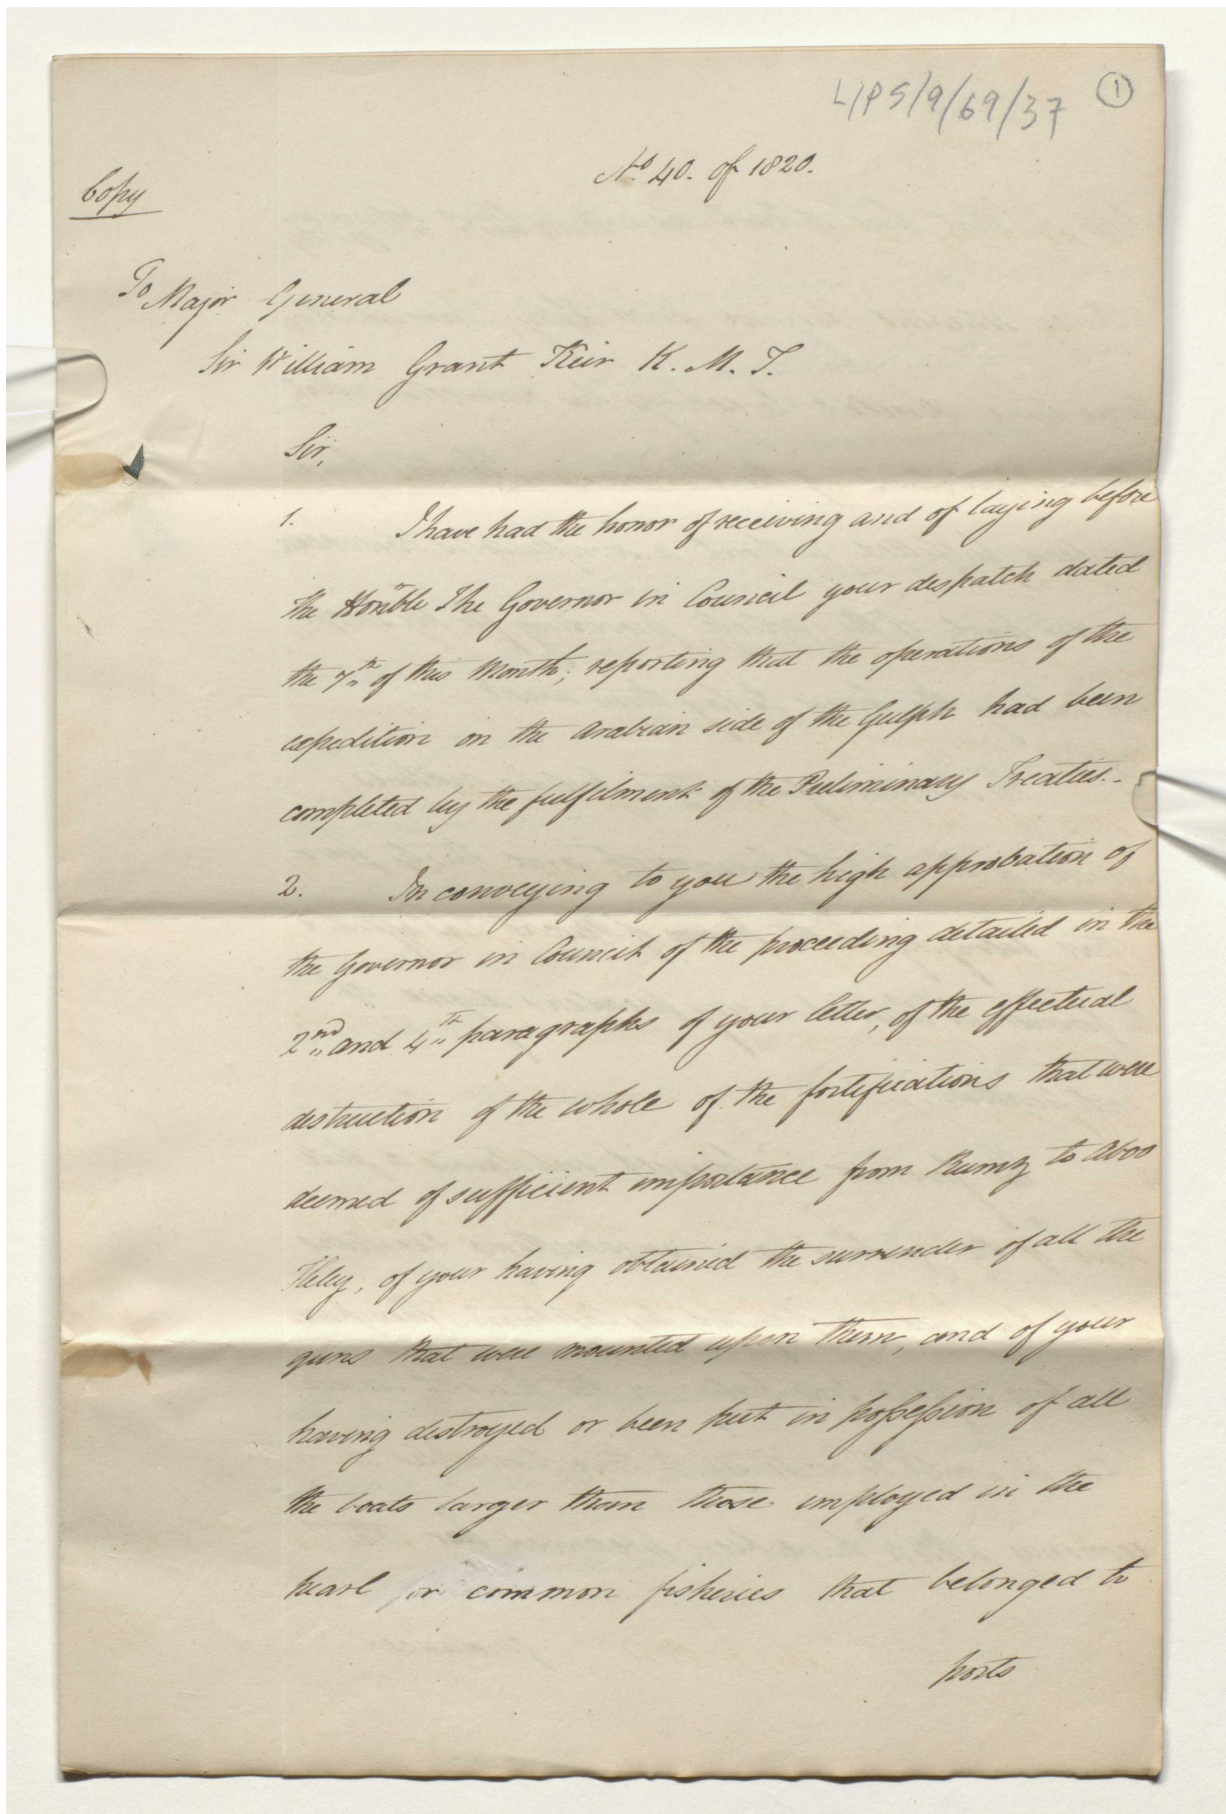 L/PS/9/69/37
1
No. 40. of 1820.
Copy
To Major General
Sir William Grant Keir K. M. T.
Sir,
1. I have had the honor of receiving and of laying before
the Honble The Governor in Council your despatch dated
the 7th of this Month; reporting that the operations of the
expedition on the Arabian side of the Gulph had been
completed by the fulfilment of the Preliminary Treaties.-
2. In conveying to you the high approbation of
the Governor in Council of the proceeding detailed in the
2nd and 4th paragraphs of your letter, of the effectual
destruction of the whole of the fortifications that were
deemed of sufficient importance from Rumz to Aboo
Heley, of your having obtained the surrender of all the
guns that were mounted upon them, and of your
having destroyed or been put in possession of all
the boats larger than those employed in the
pearl or common fisheries that belonged to
ports